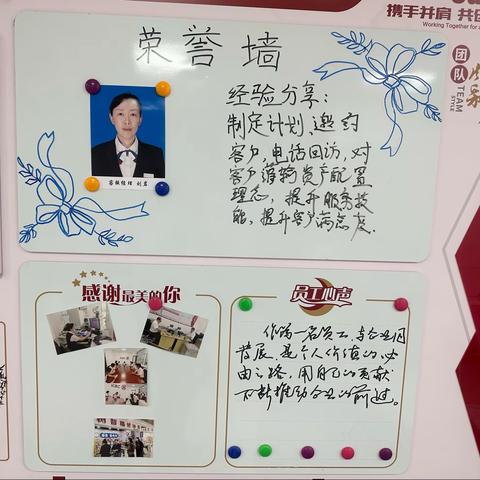 携手并肩 共
Working Together for a
团队
TEAM
STYLE
荣誉墙
经验分享：
制定计划，邀约
客户，电话回访，对
客户灌输资产配置
理念，提升服务技
能，提升客户满意度.
客服经理 刘君
感谢最美的你
员工心声
作为一名员工，与企业同
发展，是个人价值的必
由之路，用自己的贡献
不断推动企业的前进。